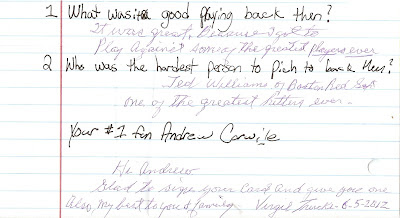 1 What was it good playing back then?
It was great. Because I got to
Play Against some of the greatest players ever
2 Who was the hardest person to pich to back then?
Ted Williams of Boston Red Sox
one of the greatest hitters ever.
Your #1 fan Andrew Carwile
Hi Andrew
Glad to sign your card and give you one
Also, my best to you & family. Virgil Trucks 6-5-2012